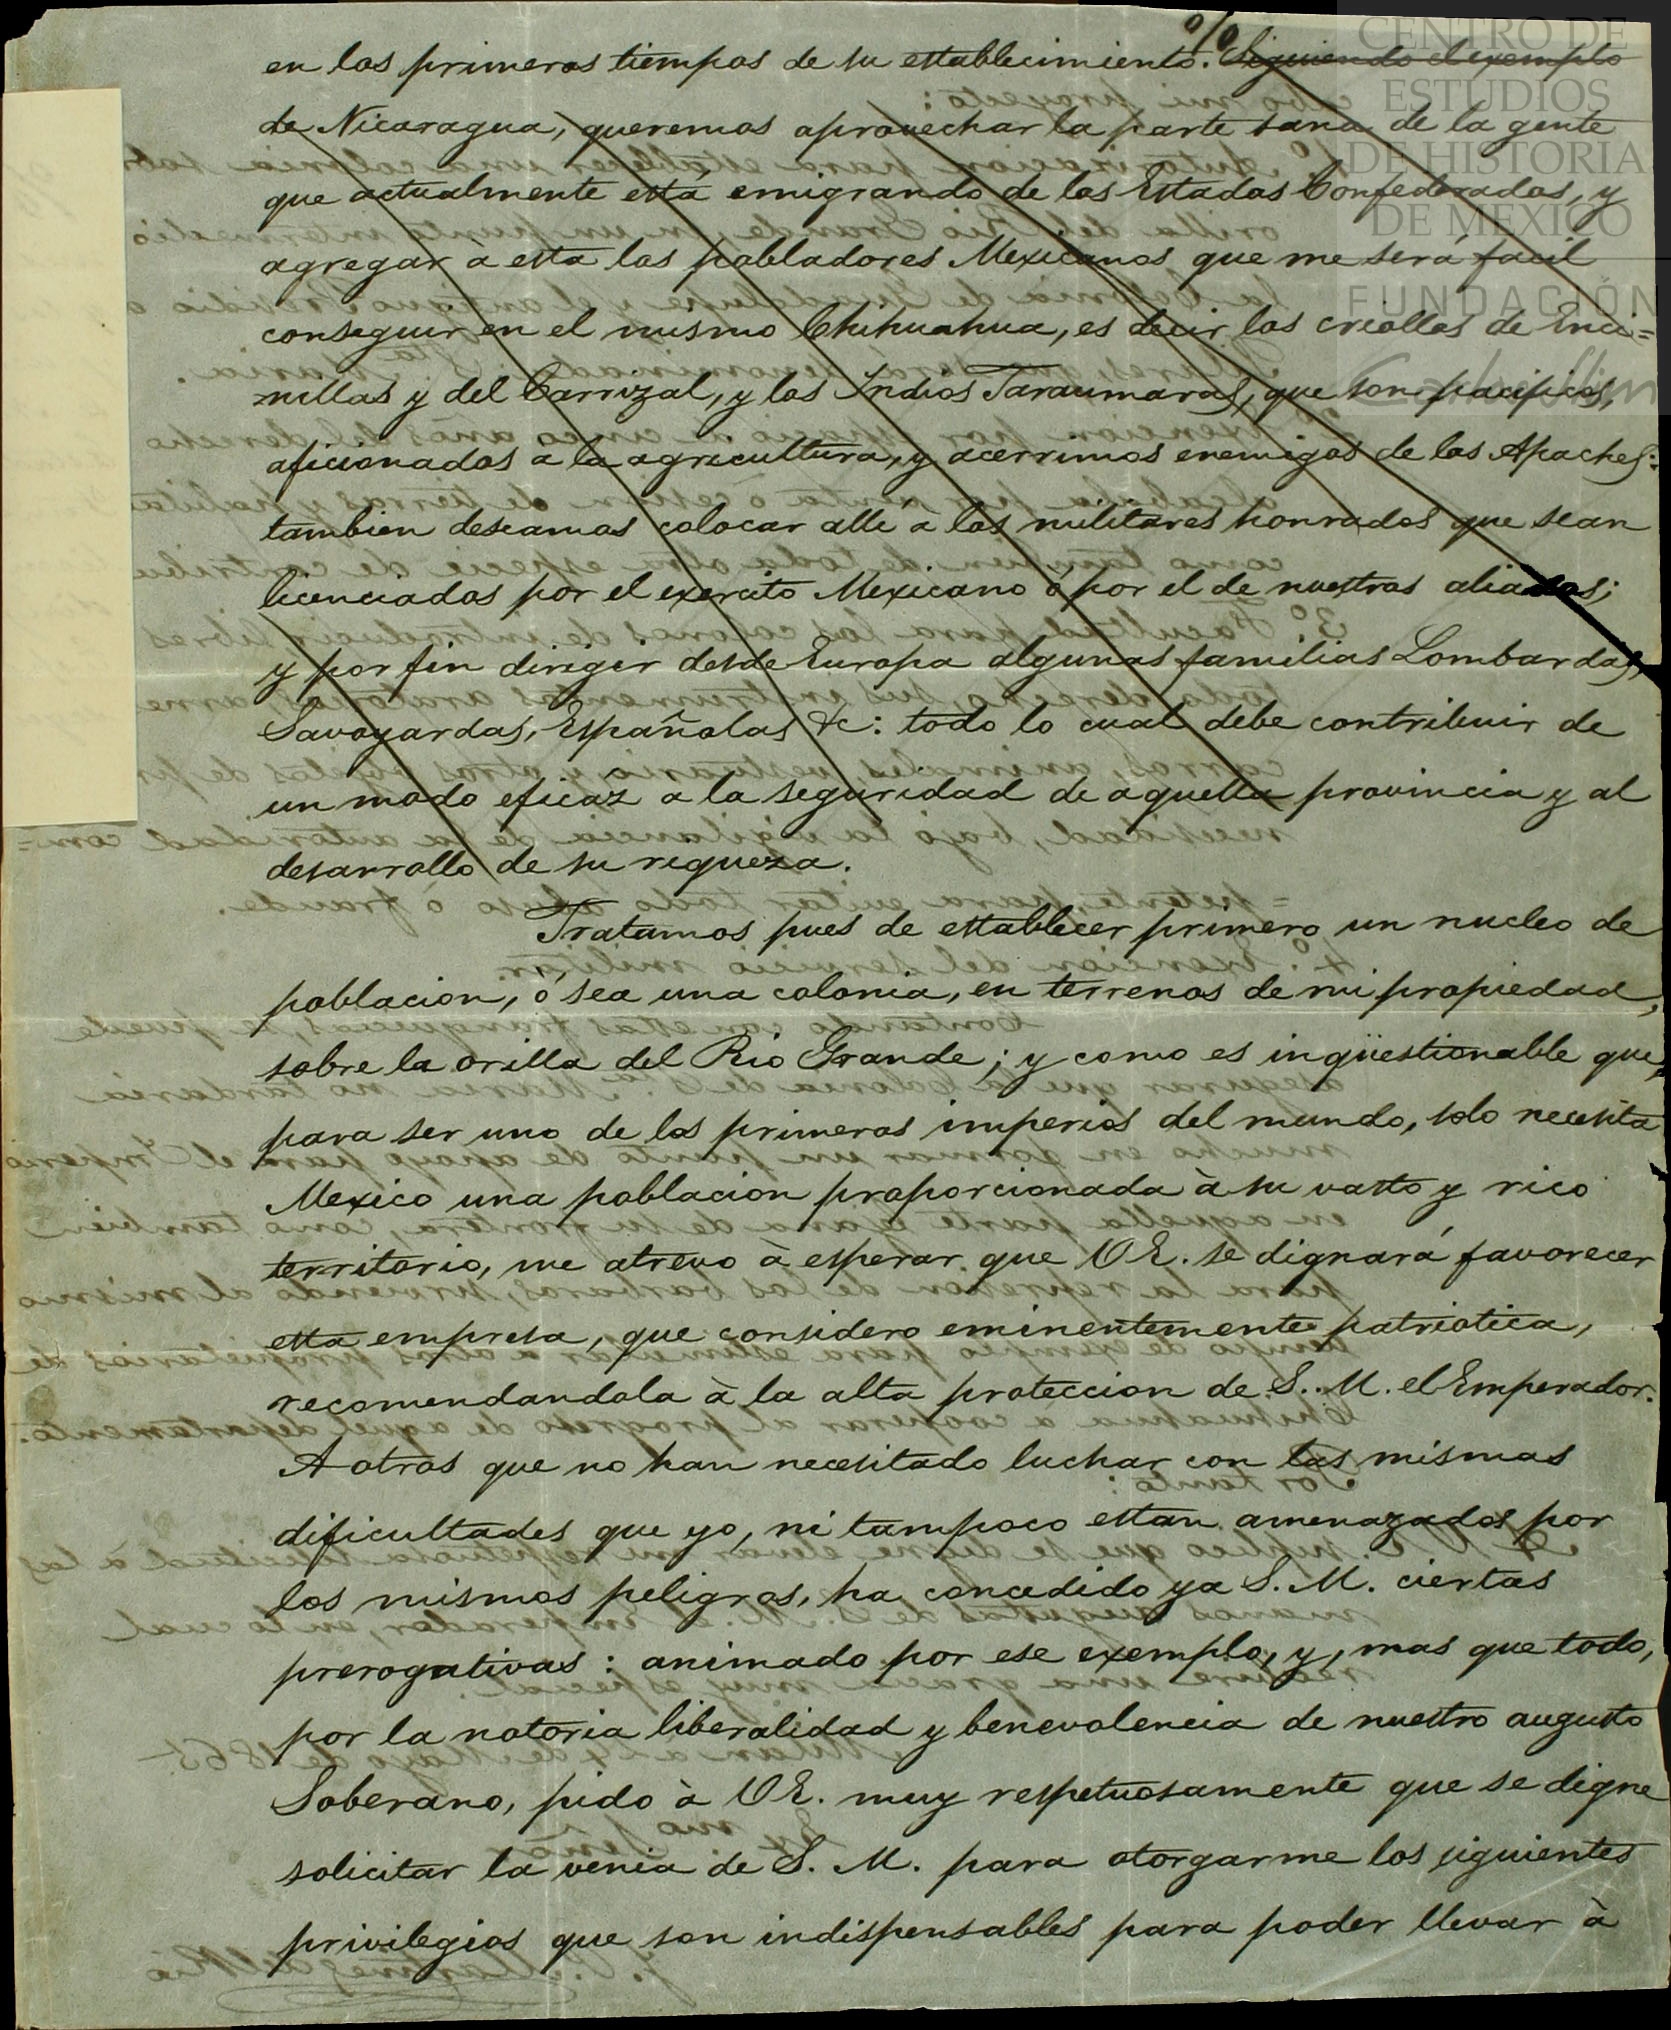 en los primeros tiempos de su establecimiento. Siguiendo el exemplo
de Nicaragua, queremos aprovechar la parte sana de la gente
que actualmente está emigrando de los Estados Confederados, y
agregar à esta los pobladores Mexicanos que me será facil
conseguir en el mismo Chihuahua, es decir los criollos de Enci=
nillas y del Carrizal, y los Indios Taraumaras, que son pacificos,
aficionados a la agricultura, y acerrimos enemigos de los Apaches:
tambien deseamos colocar allí a los militares honrados que sean
licenciados por el exercito Mexicano ó por el de nuestros aliados;
y por fin dirigir desde Europa algunas familias Lombardas,
Savoyardas, Españolas &c: todo lo cual debe contribuir de
un modo eficaz a la seguridad de aquella provincia y al
desarrollo de su riqueza.
Tratamos pues de establecer primero un nucleo de
poblacion, ó sea una colonia, en terrenos de mi propiedad,
sobre la orilla del Rio Grande; y como es inqüestionable que,
para ser uno de los primeros imperios del mundo, solo necesita
Mexico una poblacion proporcionada à su vasto y rico
territorio, me atrevo à esperar que VE. se dignará favorecer
esta empresa, que considero eminentemente patriotica,
recomendandola à la alta proteccion de S. M. el Emperador.
A otros que no han necesitado luchar con las mismas
dificultades que yo, ni tampoco estan amenazados por
los mismos peligros, ha concedido ya S. M. ciertas
prerogativas: animado por ese exemplo, y, mas que todo,
por la notoria liberalidad y benevolencia de nuestro augusto
Soberano, pido à VE. muy respetuosamente que se digne
solicitar la venia de S. M. para otorgarme los siguientes
privilegios que son indispensables para poder llevar à
CENTRO DE
ESTUDIOS
DE HISTORIA
DE MEXICO
FUNDACIÓN